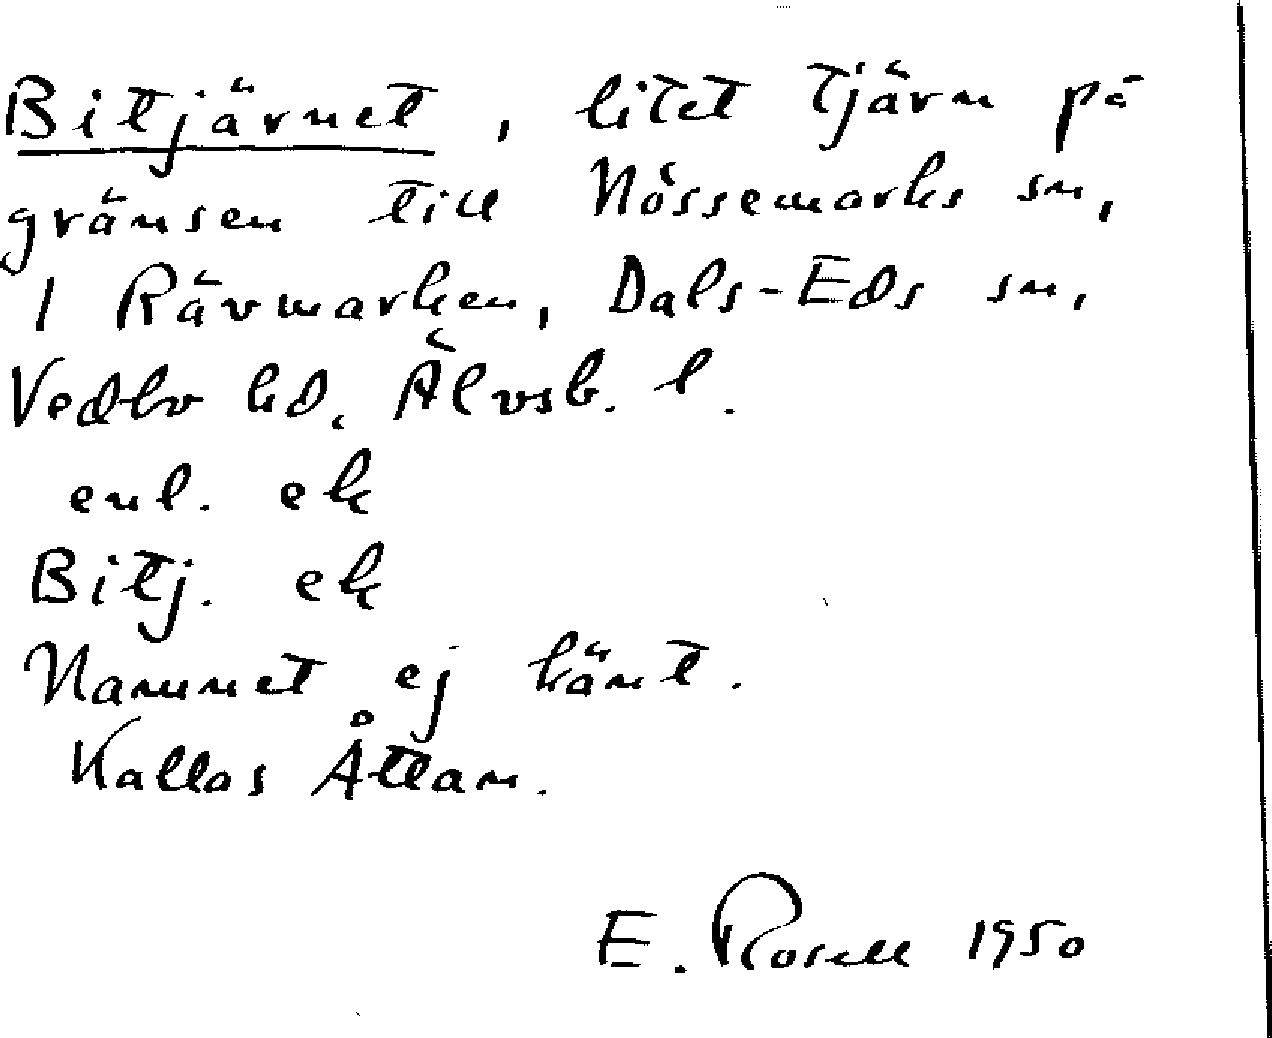 Bitjärnet, litet tjärn på
gränsen till Nössemarks sn,
1 Rävmarken, Dals-Eds sn,
Vedbo hd, Älvsb. l.
enl. ek
Bitj. ek
Namnet ej känt.
Kallas Åttan.
E. Rosell 1950